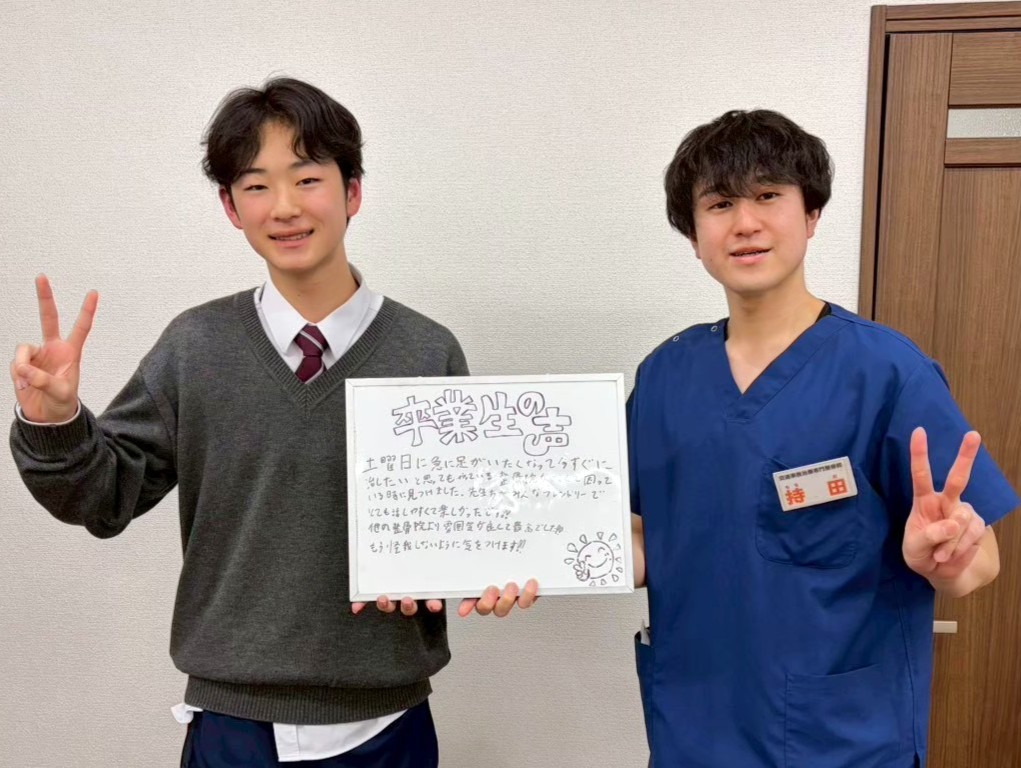 卒業生の声
土曜日に急に足がいたくなって今すぐに
治したいと思っても 困って
いる時に見つけました。先生 みんなフレンドリーで
とても話しやすくて楽しかったです!!
他の整骨院より雰囲気が良くて最高でした!!
もう怪我しないように気をつけます!!
交通事故治療専門整骨院
持田